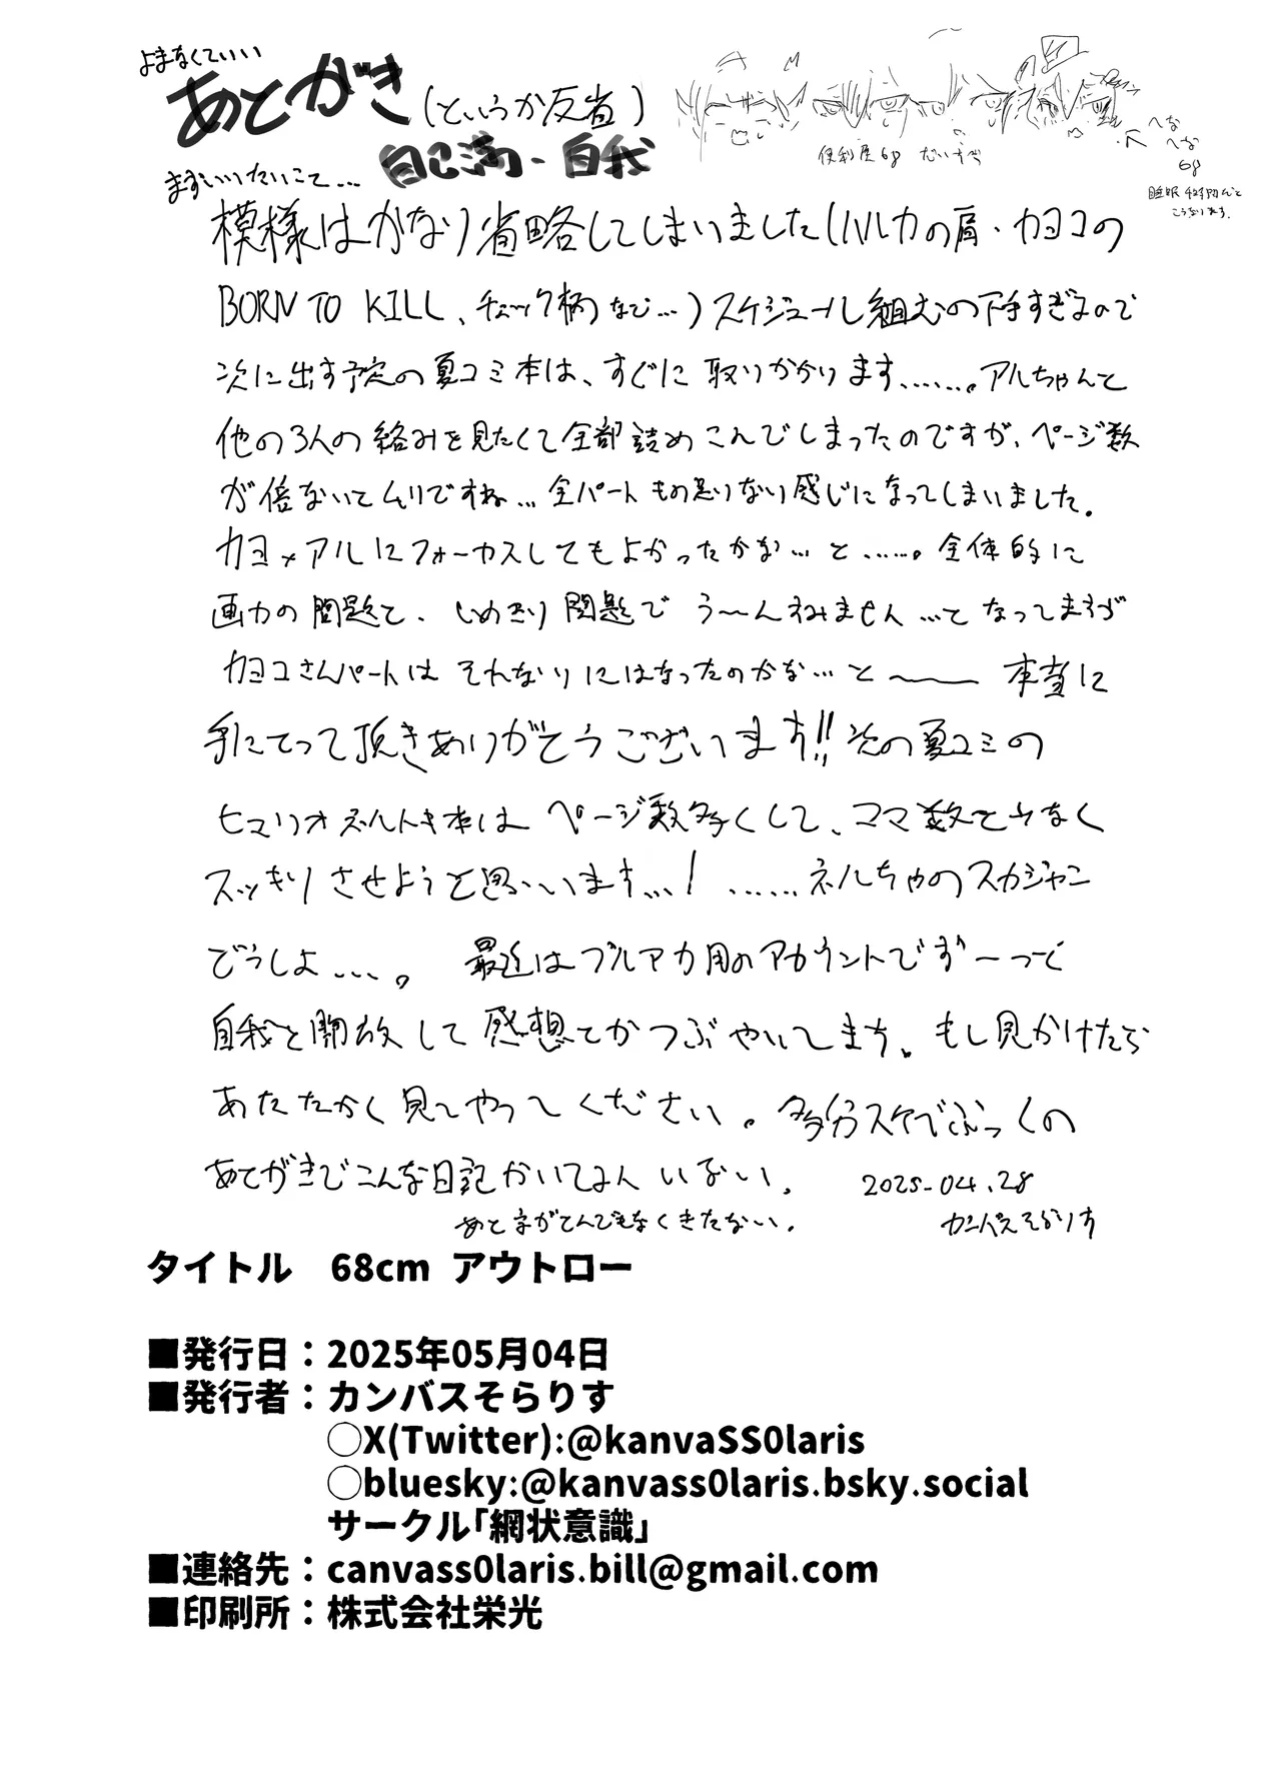 よまなくていい
あとがき(というか反省)
自己満・自我
便利屋68 だいすき
へな
へな
68
睡眠4時間だと
こうなります。
まずいいたいこと…
模様はかなり省略してしまいました(ハルカの肩・カヨコの
BORN TO KILL、チェック柄など…)スケジュール組むの下手すぎるので
次に出す予定の夏コミ本は、すぐに取りかかります……。アルちゃんと
他の3人の絡みを見たくて全部詰めこんでしまったのですが、ページ数
が倍ないとムリですね…全パートもの足りない感じになってしまいました。
カヨ×アルにフォーカスしてもよかったかな…と……。全体的に
画力の問題と、しめきり問題でう〜んすみません…となってますが
カヨコさんパートはそれなりにはなったのかな…と〜 本当に
手にとって頂きありがとうございます!!次の夏コミの
ヒマリオネルトキ本はページ数多くして、コマ数を少なく
スッキリさせようと思います…! ……ネルちゃのスカジャン
どうしよ…。 最近はブルアカ用のアカウントでずーっと
自我を開放して感想とかつぶやいてます。もし見かけたら
あたたかく見てやってください。多分スケでぶっくの
あとがきでこんな日記かいてる人いない。 2025.04.28
あと字がとんでもなくきたない。 カンバスそらりす
タイトル 68cm アウトロー
■発行日：2025年05月04日
■発行者：カンバスそらりす
○X(Twitter):@kanvaSS0laris
○bluesky:@kanvass0laris.bsky.social
サークル「網状意識」
■連絡先：canvass0laris.bill@gmail.com
■印刷所：株式会社栄光